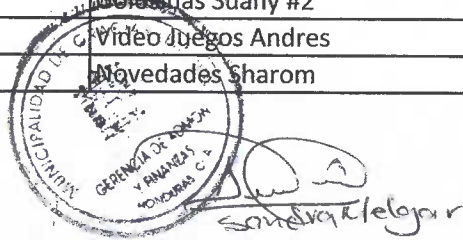 Golosinas Suany #2
Video Juegos Andres
Novedades Sharom
MUNICIPALIDAD DE
GERENCIA DE ADMON
Y FINANZAS
HONDURAS C.A.
Sandra Melgar